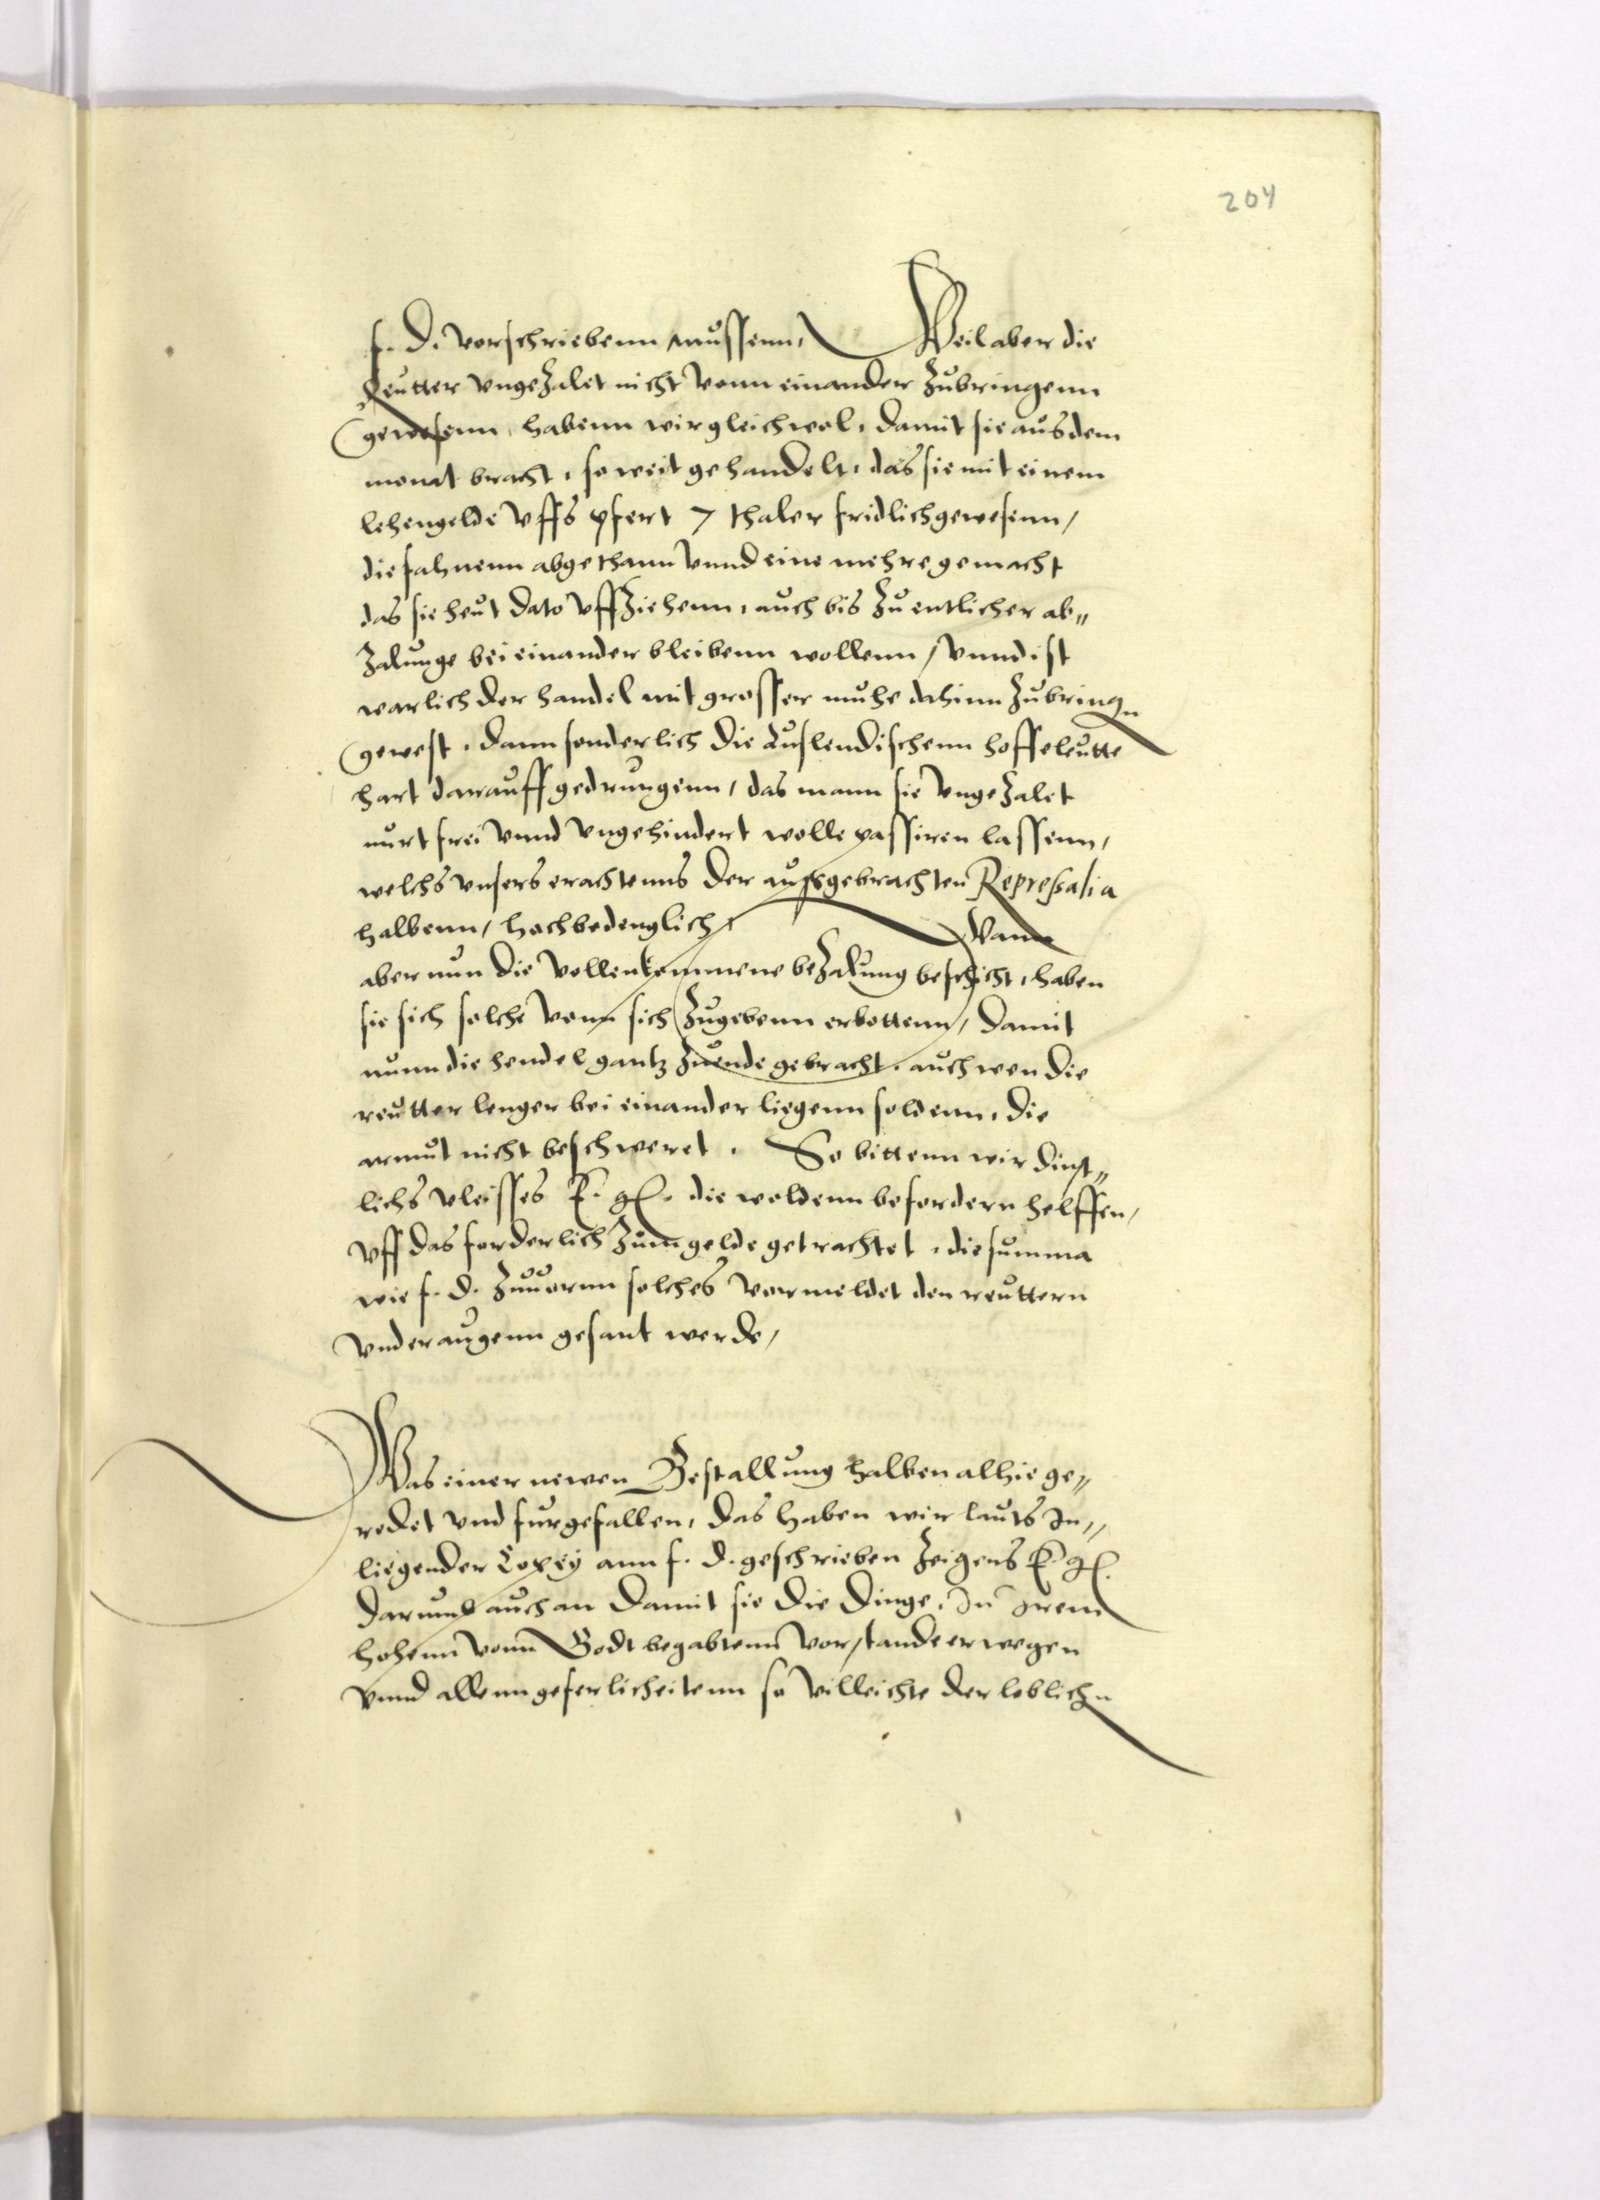 204
f. d. vorschriebenn mussenn, Weil aber die
Reutter vngezalet nicht vonn einander zubringenn
gewesenn, habenn wir gleichwol, damit sie aus dem
monat bracht, so weit gehandelt, das sie mit einem
lehengelde vffs pfert 7 thaler fridlich gewesenn,
die fahnenn abgethann vnnd eine mehre gemacht
das sie heut dato vffziehenn, auch bis zu entlicher ab„
zalunge bei einander bleibenn wollenn, vnnd ist
warlich der handel mit grosser muhe dahinn zubringn
gewest, dann sonderlich die Auslendischenn hoffeleutte
hart darauff gedrungenn, das mann sie vngezalet
nurt frei vnnd vngehindert wolle passiren lassenn,
welchs vnsers erachtenns der aussgebrachten Repressalia
halbenn, hochbedenglich, Wann
aber nun die vollenkommene bezalung beschicht, haben
sie sich solche vonn sich zugebenn erbottenn, damit
nunn die hendel gantz zu ende gebracht, auch wen die
reutter lenger bei einander liegenn soldenn, die
armut nicht beschweret. So bittenn wir dinst„
lichs vleisses E. g. die woldenn befordern helffen,
vff das forderlich zum gelde getrachtet, die summa
wie f. d. zuuornn solches vormeldet den reuttern
vnder augenn gesant werde,
Was einer newen Bestallung halben alhie ge„
redet vnd furgefallen, das haben wir lauts In„
liegender Copey ann f. d. geschrieben zeigens E. g.
darumb auch an damit sie die dinge, In Irem
hohenn vonn Godt begabtenn vorstande erwegen
vnnd allenn geferlicheitenn so villeichte der loblichn